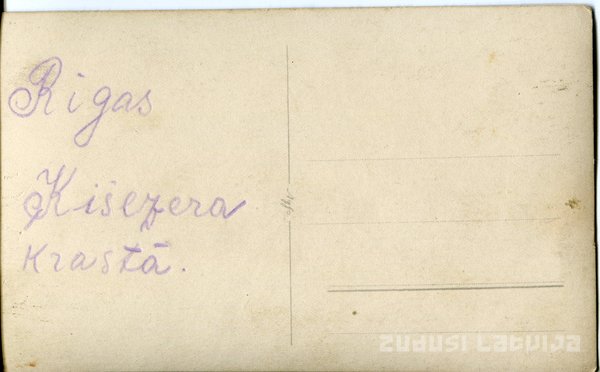 Rigas
Kišezera
krastā.
zudusi Latvija